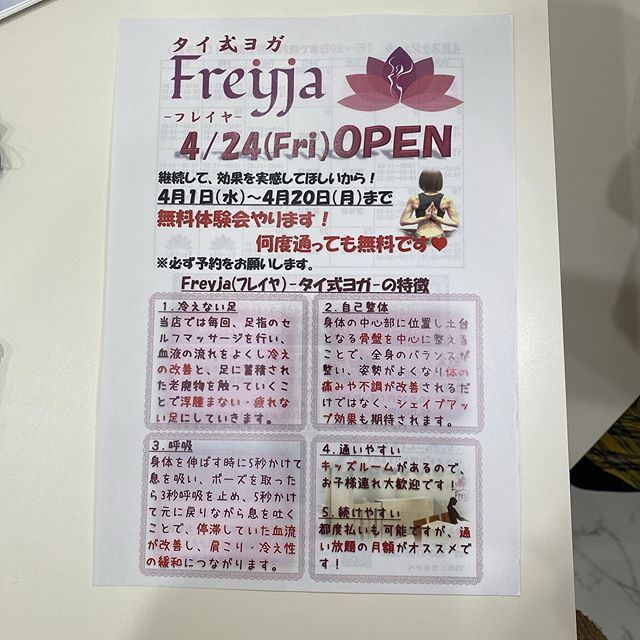 タイ式ヨガ
Freyja
-フレイヤ-
4/24(Fri)OPEN
継続して、効果を実感してほしいから!
4月1日(水)～4月20日(月)まで
無料体験会やります!
何度通っても無料です♥
※必ず予約をお願いします。
Freyja(フレイヤ)-タイ式ヨガ-の特徴
1.冷えない足
当店では毎回、足指のセ
ルフマッサージを行い、
血液の流れをよくし冷え
の改善と、足に蓄積され
た老廃物を触っていくこ
とで浮腫まない・疲れな
い足にしていきます。
2.自己整体
身体の中心部に位置し土台
となる骨盤を中心に整える
ことで、全身のバランスが
整い、姿勢がよくなり体の
痛みや不調が改善されるだ
けではなく、シェイプアッ
プ効果も期待されます。
3.呼吸
身体を伸ばす時に5秒かけて
息を吸い、ポーズを取った
ら3秒呼吸を止め、5秒かけ
て元に戻りながら息を吐く
ことで、停滞していた血流
が改善し、肩こり・冷え性
の緩和につながります。
4.通いやすい
キッズルームがあるので、
お子様連れ大歓迎です!
5.続けやすい
都度払いも可能ですが、通
い放題の月額がオススメで
す!